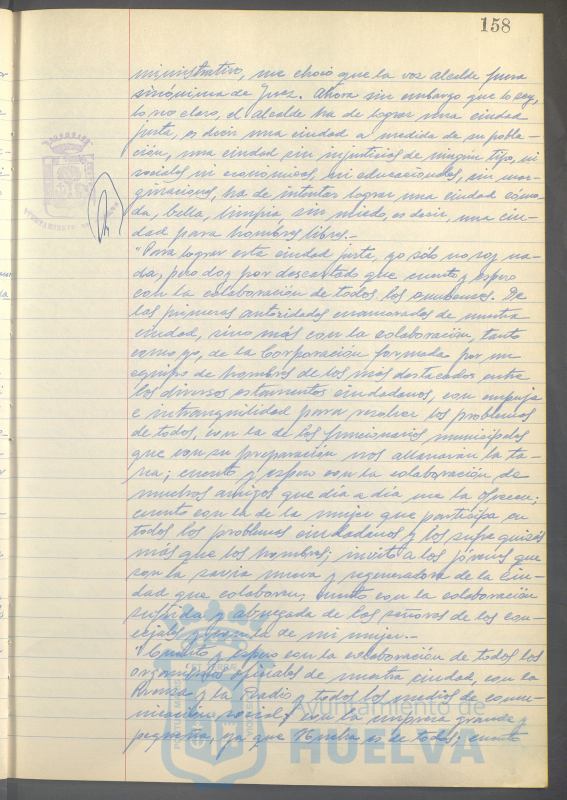 158
ministrativo, me choca que la voz alcalde fuera
sinónima de Juez. Ahora sin embargo que lo soy,
lo veo claro, el alcalde ha de lograr una ciudad
justa, es decir una ciudad a medida de su pobla-
ción, una ciudad sin injusticias de ningún tipo, ni
sociales ni económicas, ni educacionales, sin mar-
ginaciones, ha de intentar lograr una ciudad cómo-
da, bella, limpia, sin miedo, es decir, una ciu-
dad para hombres libres.-
"Para lograr esta ciudad justa, yo sólo no soy na-
da, pero doy por descartado que cuento y espero
con la colaboración de todos los onubenses. De
las primeras autoridades enamoradas de nuestra
ciudad, sino más con la colaboración, tanto
como yo, de la Corporación formada por un
equipo de hombres de los más destacados entre
los diversos estamentos ciudadanos, con empuje
e intranquilidad para resolver los problemas
de todos, con la de los funcionarios municipales
que con su preparación nos allanarán la ta-
rea; cuento y espero con la colaboración de
muchos amigos que día a día me la ofrecen;
cuento con la de la mujer que participa en
todos los problemas ciudadanos y los sufre quizás
más que los hombres; invito a los jóvenes que
son la savia nueva y regeneradora de la Ciu-
dad que colaboren, cuento con la colaboración
sufrida y abnegada de las señoras de los con-
cejales y con la de mi mujer.-
"Cuento y espero con la colaboración de todos los
organismos oficiales de nuestra ciudad, con la
Prensa y la Radio y todos los medios de comu-
nicación social, con la empresa grande y
pequeña, ya que Huelva es de todos; cuento
Ayuntamiento de
HUELVA